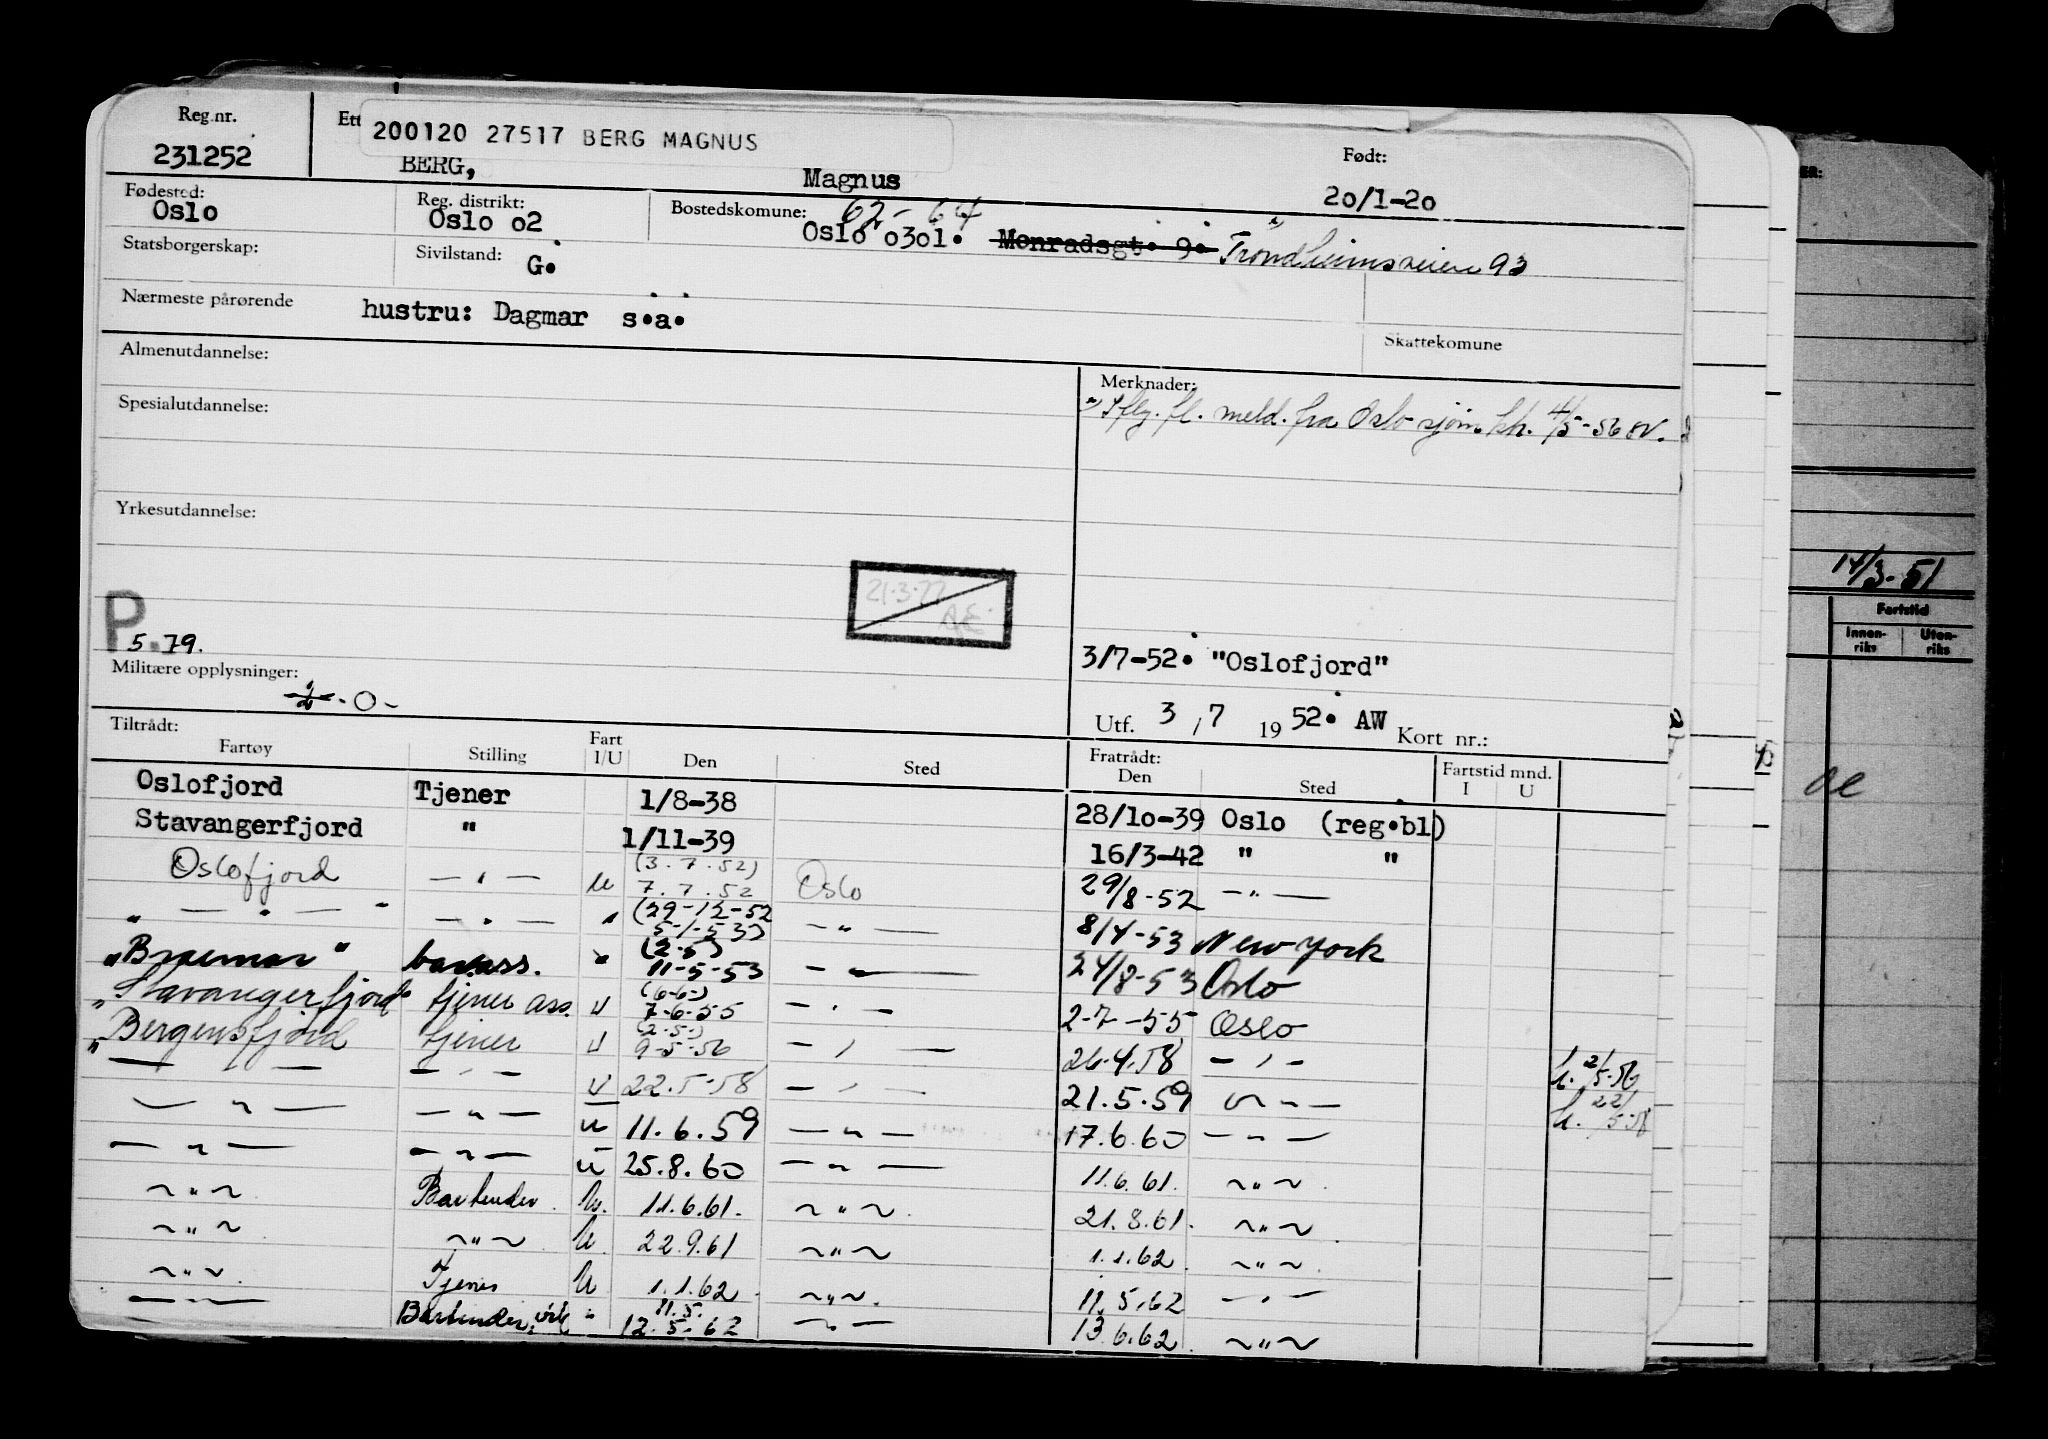 Reg.nr. Ett 200120 27517 BERG MAGNUS Født:
231252 BERG, Magnus 20/1-20
Fødested: Reg. distrikt: Bostedskomune: 62-64
Oslo Oslo o2 Oslo o3o1. Monradsgt. 9. Trondheimsveien 93
Statsborgerskap: Sivilstand: G.
Nærmeste pårørende hustru: Dagmar s.a.
Almenutdannelse: Skattekomune
Merknader:
Iflg. fl. meld. fra Oslo sjøm. kh. 4/5-56
Spesialutdannelse:
Yrkesutdannelse:
21.3.77
AE
P
5.79.
3/7-52. "Oslofjord"
Militære opplysninger:
-0-
Utf. 3/7 1952. AW Kort nr.:
Tiltrådt: Fratrådt:
Fartøy Stilling Fart I/U Den Sted Den Sted Fartstid mnd. I U
Oslofjord Tjener 1/8-38 28/1o-39 Oslo (reg.bl)
Stavangerfjord " 1/11-39 16/3-42 " "
Oslofjord — " — u (3.7.52) 7.7.52 Oslo 29/8-52 — " —
" — " — " — " — " (29-12-52 5-1-53) — " — 8/4-53 New York
"Braemar" barass. " (2-5) 11-5-53 — " — 24/8-53 Oslo
"Stavangerfjord" tjener ass. U (6-6-) 7-6-55 — " — 2-7-55 Oslo
"Bergensfjord tjener U (2-5-) 9-5-56 — " — 26.4.58 — " — h. 2/5-56
— " — — " — U 22.5-58 — " — 21.5.59 — " — h. 22/5-58
— " — — " — u 11.6.59 — " — 17.6.60 — " —
— " — — " — u 25.8.60 — " — 11.6.61. ~ " ~
~ " ~ Bartender. U. 11.6.61. ~ " ~ 21.8.61. ~ " ~
~ " ~ ~ " ~ U 22.9.61 ~ " ~ 1.1.62 ~ " ~
~ " ~ Tjener U 1.1.62 ~ " ~ 11.5.62 — " —
— " — Bartender " 11.5. 12.5.62 — " — 13.6.62. ~ " ~
14/3-51
Fartstid
Innen-riks Uten-riks